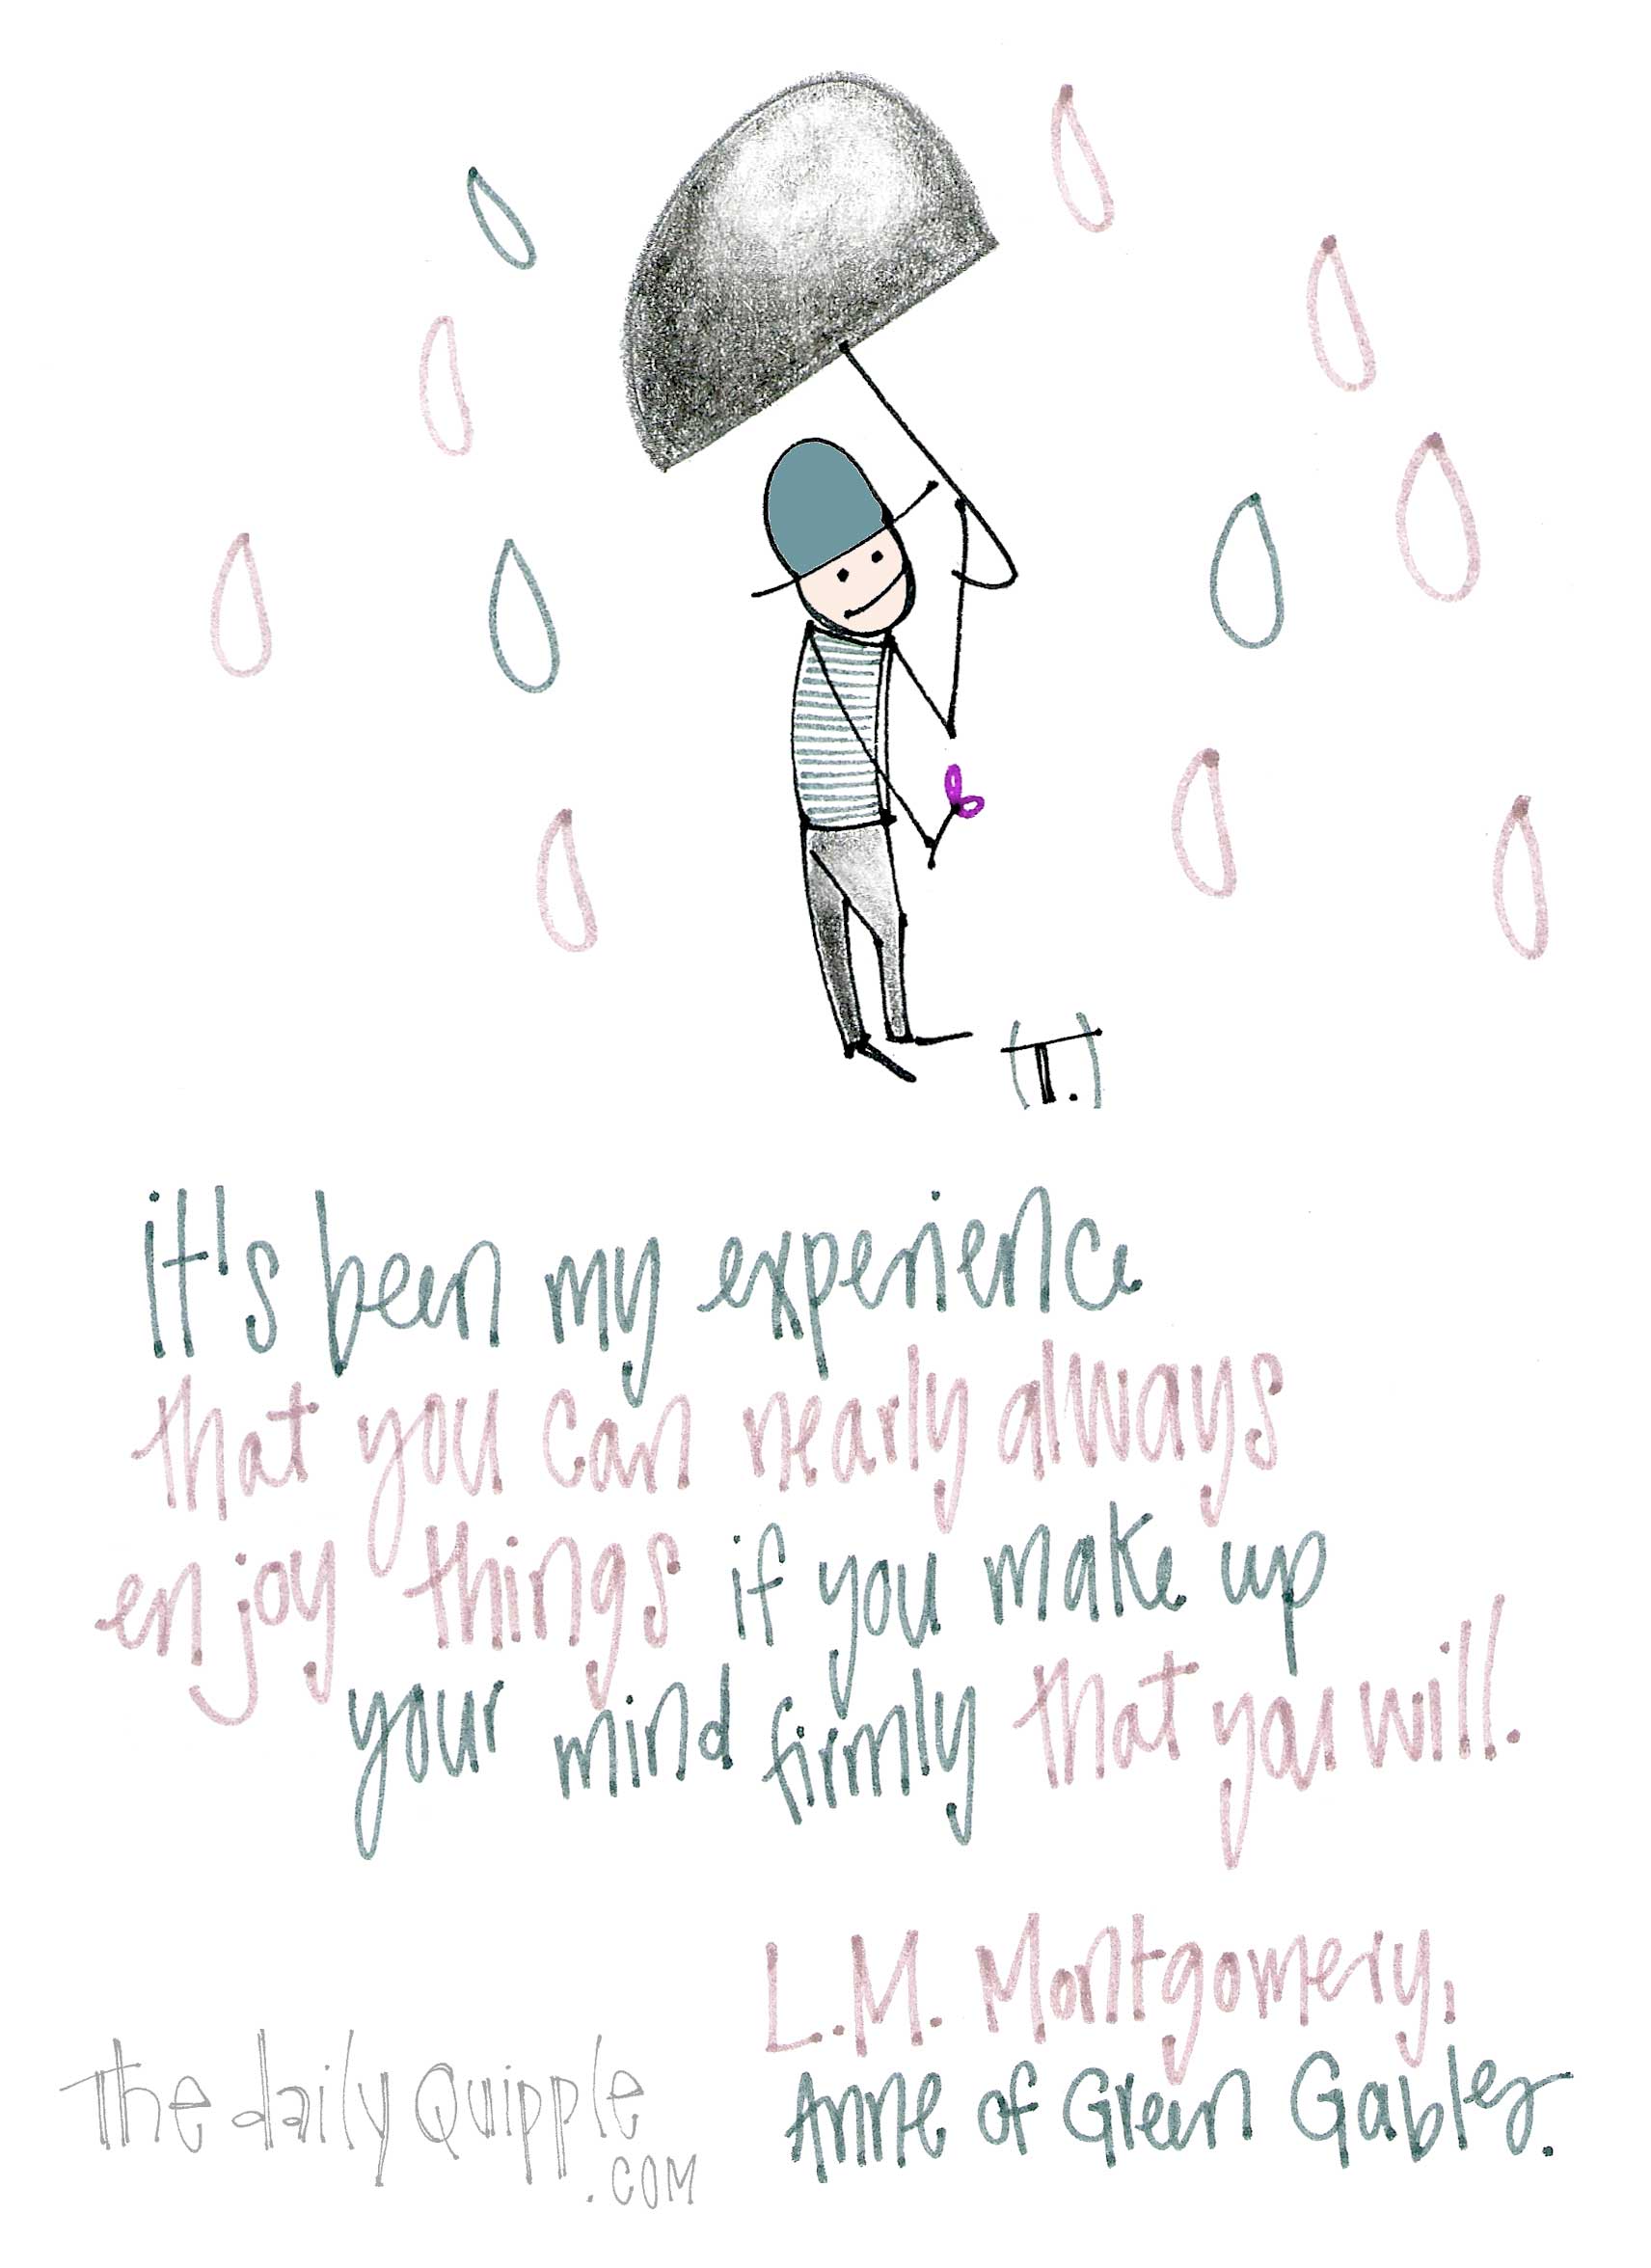 (T.)
it's been my experience
that you can nearly always
enjoy things if you make up
your mind firmly that you will.
L.M. Montgomery,
Anne of Green Gables.
The daily Quipple
.com